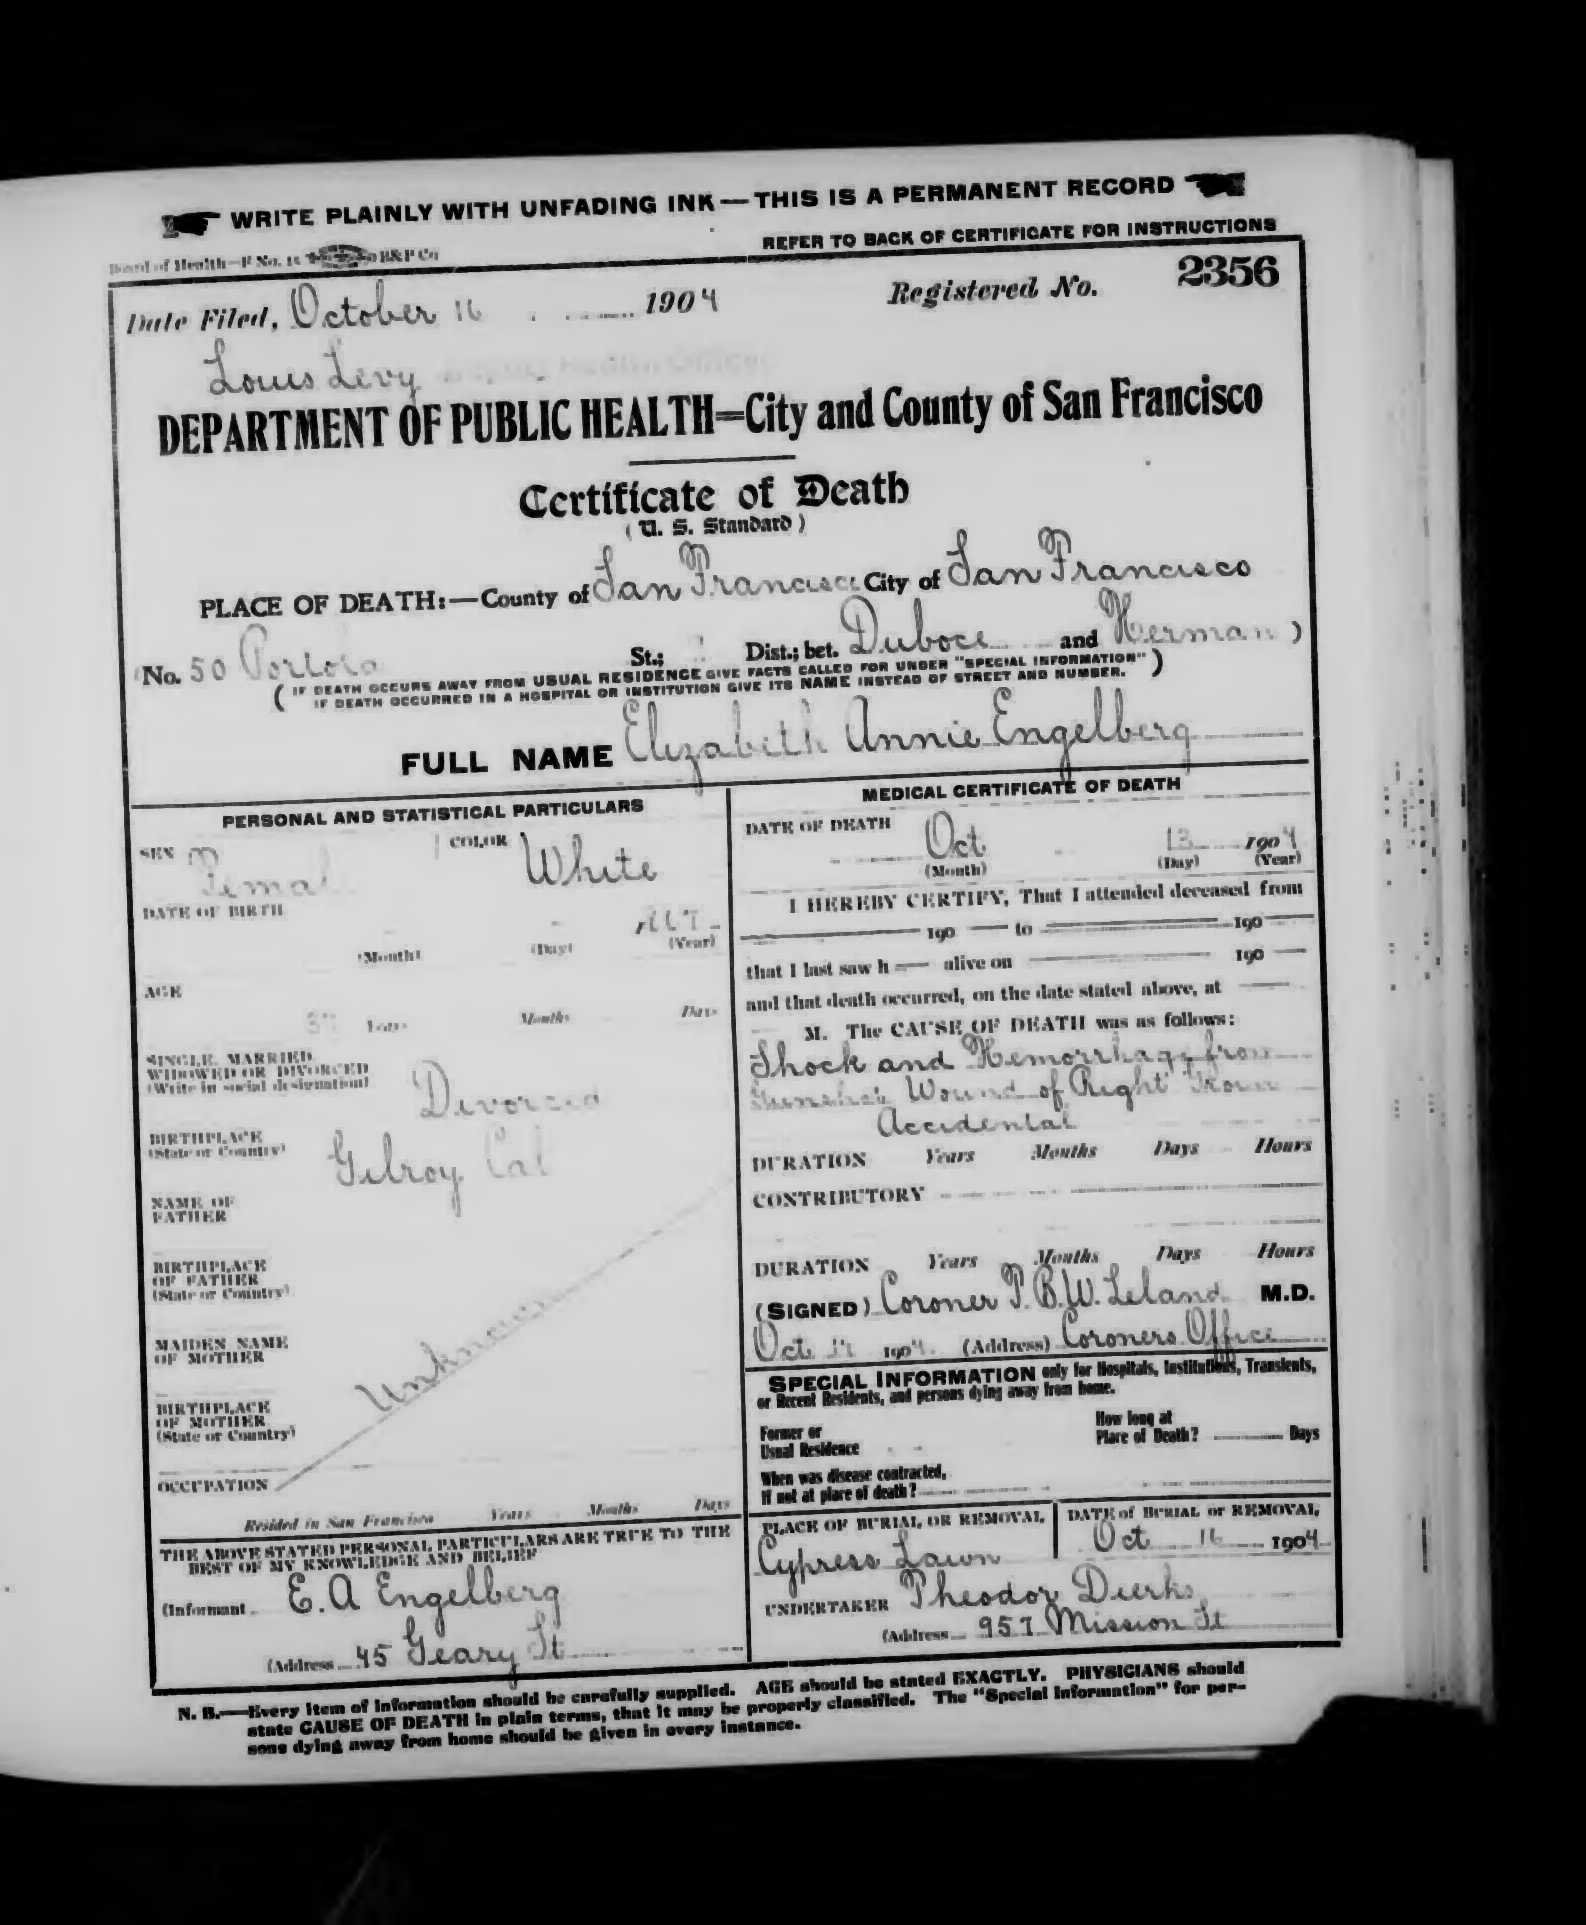 WRITE PLAINLY WITH UNFADING INK—THIS IS A PERMANENT RECORD
REFER TO BACK OF CERTIFICATE FOR INSTRUCTIONS
Board of Health—F No. 15 B&P Co
Date Filed, October 16 1904 Registered No. 2356
Louis Levy
DEPARTMENT OF PUBLIC HEALTH=City and County of San Francisco
Certificate of Death
(U. S. Standard)
PLACE OF DEATH:—County of San Francisco City of San Francisco
(No. 50 Portola St.; Dist.; bet. Duboce and Herman)
(IF DEATH OCCURS AWAY FROM USUAL RESIDENCE GIVE FACTS CALLED FOR UNDER "SPECIAL INFORMATION"
IF DEATH OCCURRED IN A HOSPITAL OR INSTITUTION GIVE ITS NAME INSTEAD OF STREET AND NUMBER.)
FULL NAME Elizabeth Annie Engelberg
PERSONAL AND STATISTICAL PARTICULARS
SEX Female COLOR White
DATE OF BIRTH
(Month) (Day) (Year)
AGE
37 Years Months Days
SINGLE, MARRIED,
WIDOWED OR DIVORCED
(Write in social designation) Divorced
BIRTHPLACE
(State or Country) Gilroy Cal
NAME OF
FATHER
BIRTHPLACE
OF FATHER
(State or Country)
MAIDEN NAME
OF MOTHER
Unknown
BIRTHPLACE
OF MOTHER
(State or Country)
OCCUPATION
Resided in San Francisco Years Months Days
THE ABOVE STATED PERSONAL PARTICULARS ARE TRUE TO THE
BEST OF MY KNOWLEDGE AND BELIEF
(Informant E. A Engelberg
(Address 45 Geary St
MEDICAL CERTIFICATE OF DEATH
DATE OF DEATH
Oct 13 1904
(Month) (Day) (Year)
I HEREBY CERTIFY, That I attended deceased from
190 to 190
that I last saw h alive on 190
and that death occurred, on the date stated above, at
M. The CAUSE OF DEATH was as follows:
Shock and Hemorrhage from
Gunshot Wound of Right
Accidental
DURATION Years Months Days Hours
CONTRIBUTORY
DURATION Years Months Days Hours
(SIGNED) Coroner T. B. W. Leland M.D.
Oct 1904. (Address) Coroners Office
SPECIAL INFORMATION only for Hospitals, Institutions, Transients,
or Recent Residents, and persons dying away from home.
Former or
Usual Residence
How long at
Place of Death? Days
When was disease contracted,
If not at place of death?
PLACE OF BURIAL OR REMOVAL
Cypress Lawn
DATE of BURIAL or REMOVAL
Oct 16 1904
UNDERTAKER Theodor Dierks
(Address 957 Mission St
N. B.—Every item of information should be carefully supplied. AGE should be stated EXACTLY. PHYSICIANS should
state CAUSE OF DEATH in plain terms, that it may be properly classified. The "Special Information" for per-
sons dying away from home should be given in every instance.